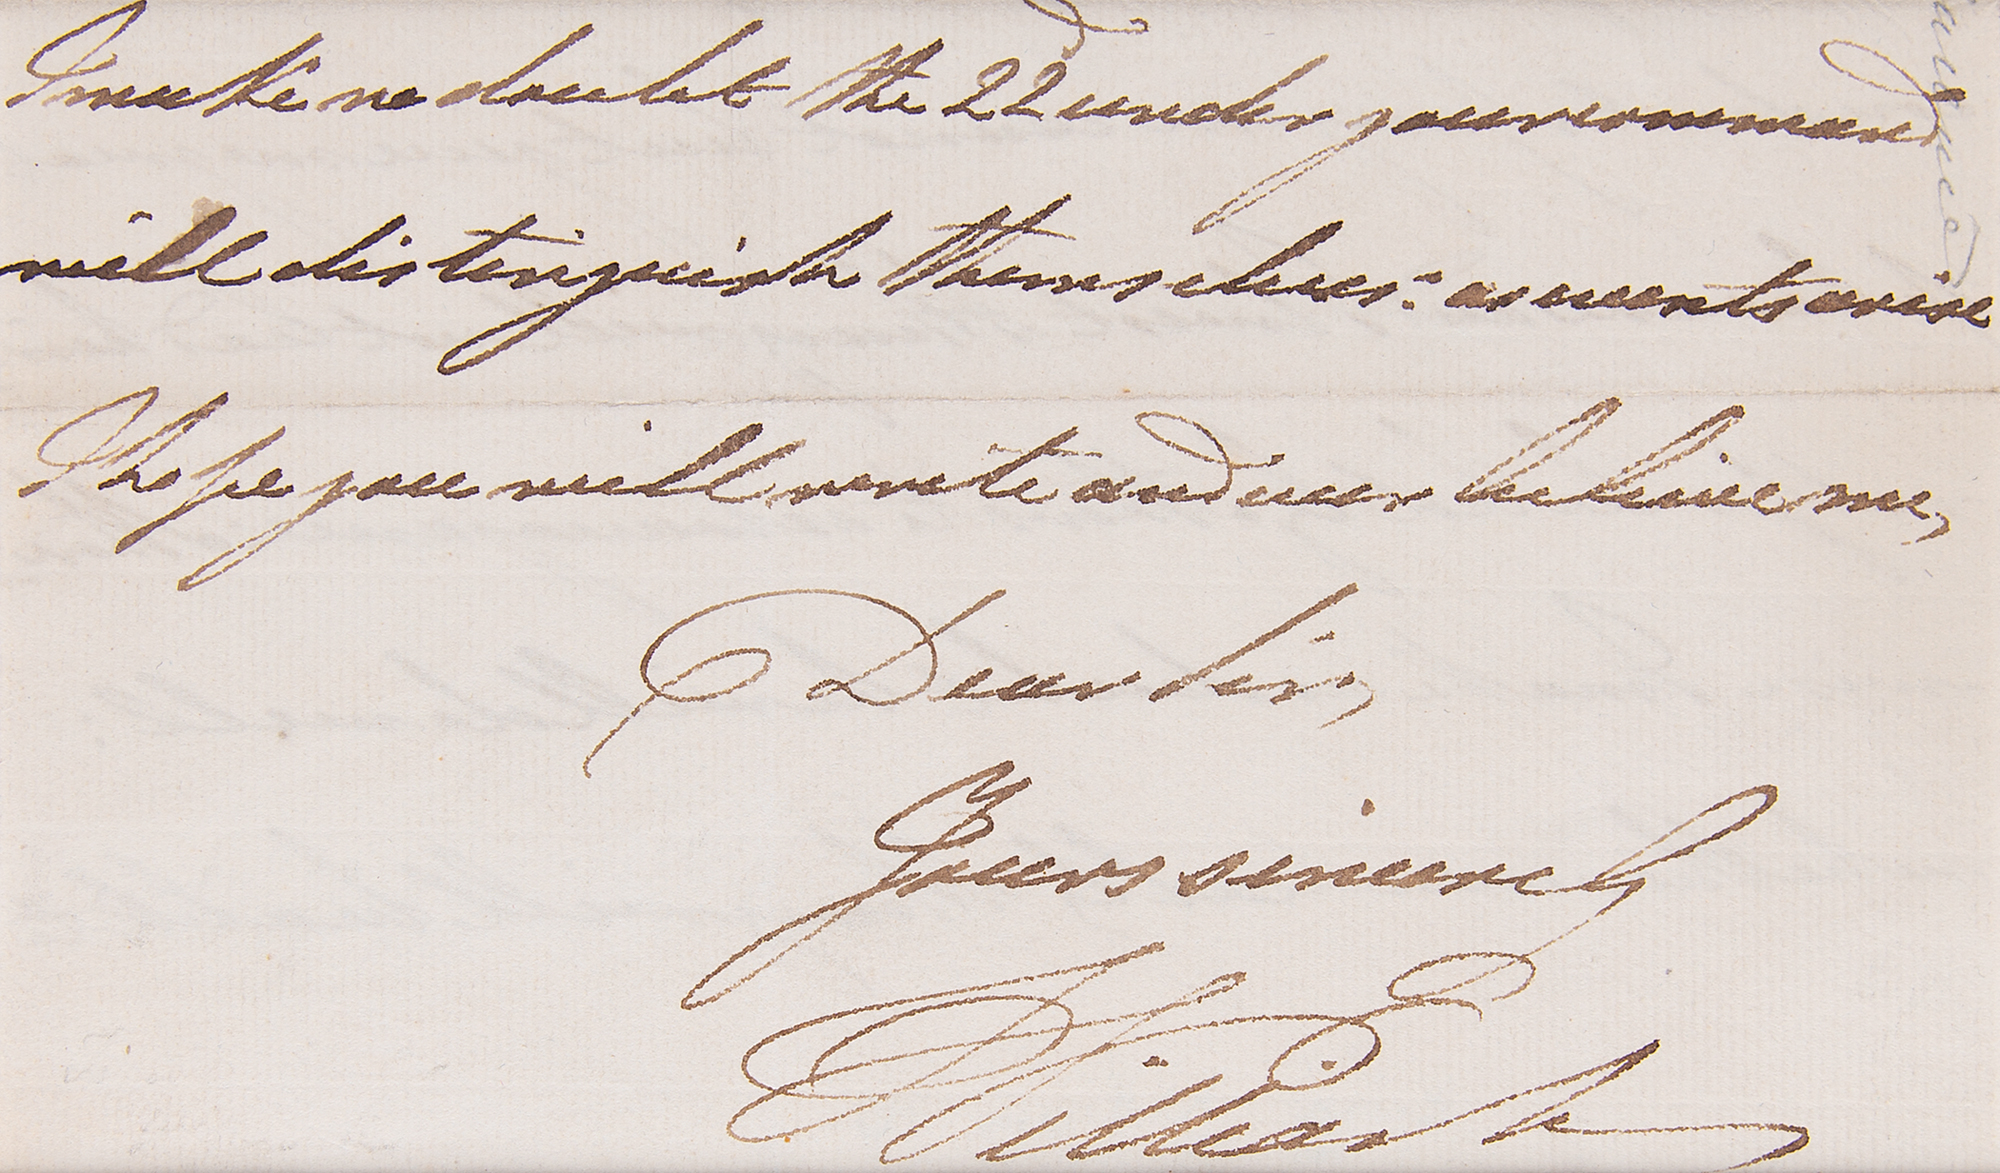 I make no doubt the 22d under your command
will distinguish themselves: as events arise
I hope you will write and ever believe me,
Dear Sir,
Yours sincerely
William